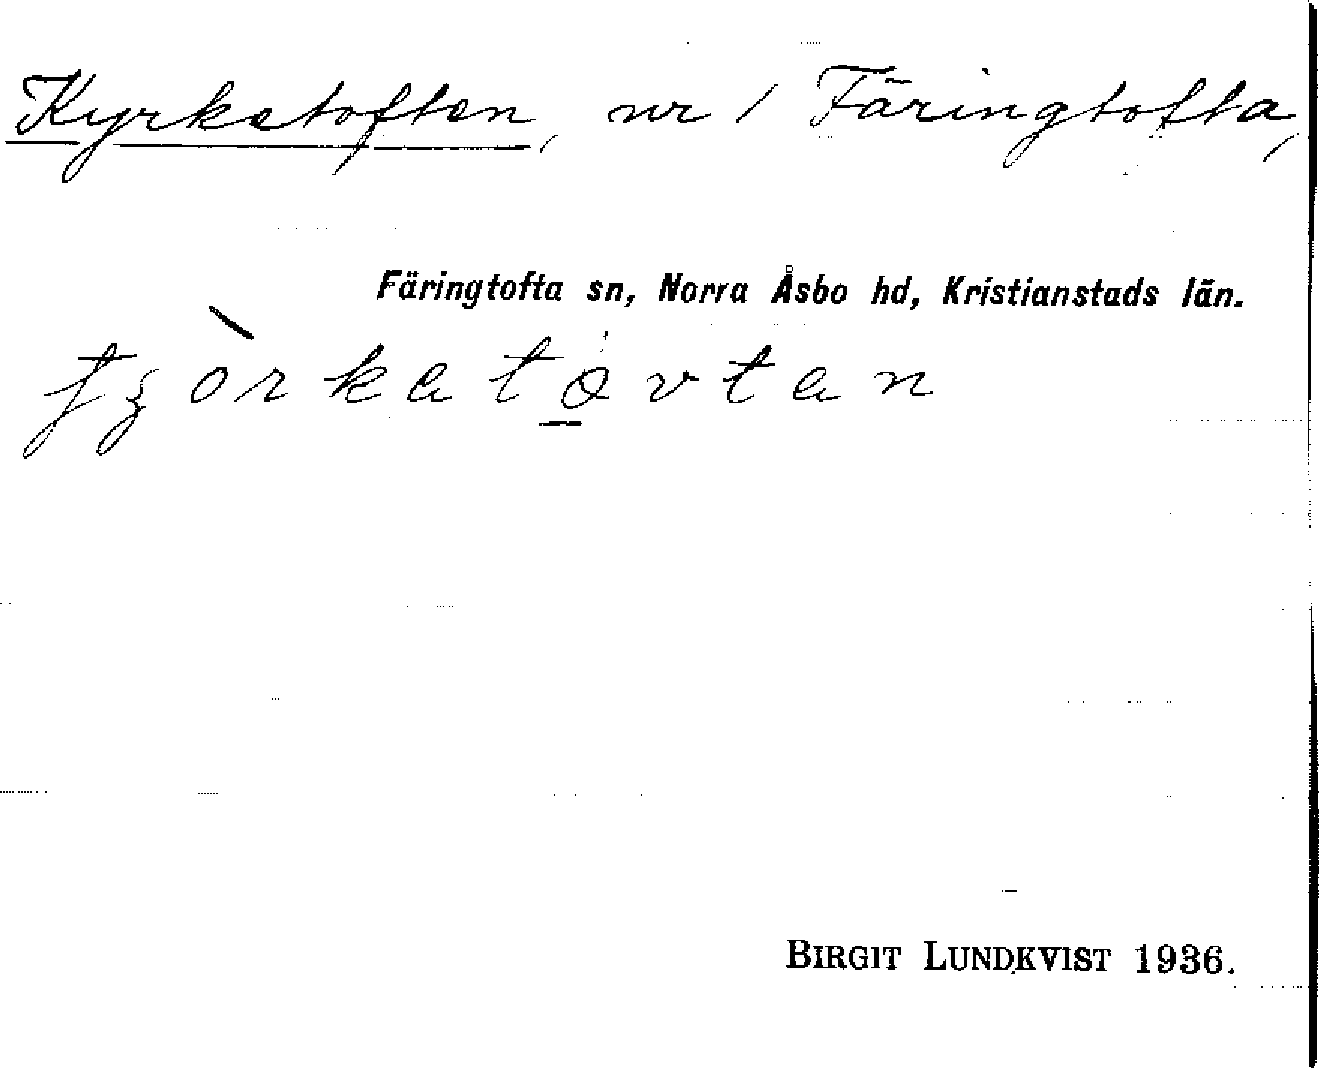 Kyrketoften, nr 1 Färingtofta,
Färingtofta sn, Norra Åsbo hd, Kristianstads län.
BIRGIT LUNDKVIST 1936.